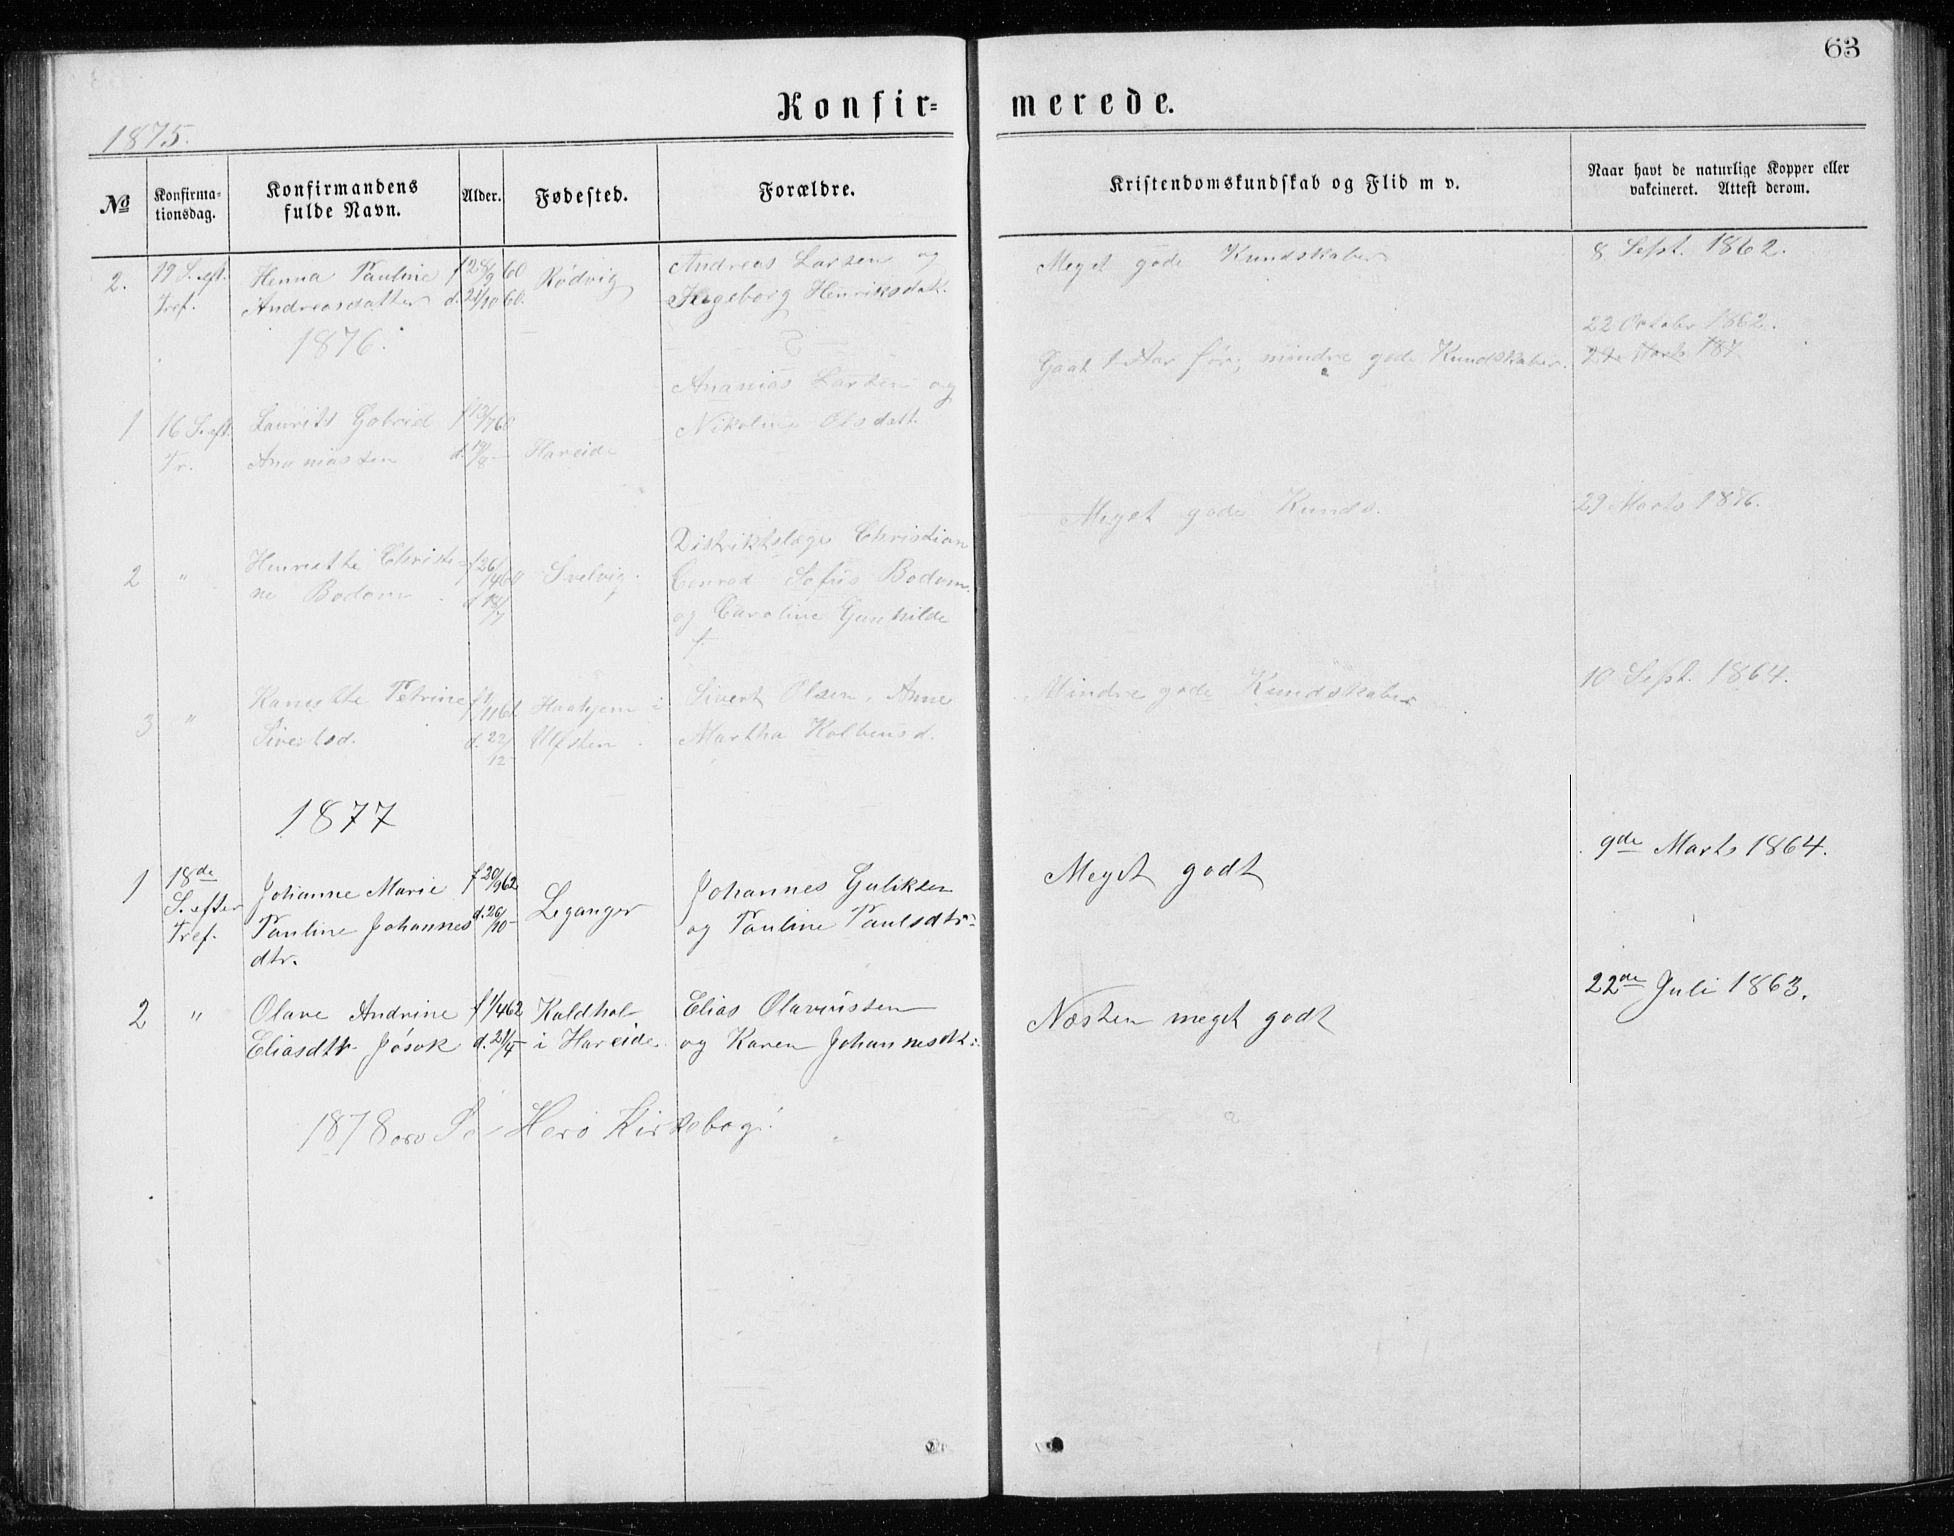 63
Konfir=
merede.
1875.
№
Konfirma=
tionsdag.
Konfirmandens
fulde Navn.
Alder.
Fødested.
Forældre.
Kristendomskundskab og Flid m v.
Naar havt de naturlige Kopper eller
vakcineret. Attest derom.
2.
19 S. eft.
Tref.
Henna Pauline
Andreasdatter
f 28/9 60
d. 21/10 60.
Rødvig
Andreas Larsen og
Ingeborg Henriksdatt.
Meget gode Kundskaber
8 Sept. 1862.
1876.
1
16 S. eft.
Tr.
Laurits Gabriel
Ananiassen
f 13/7 60
Hareide
Ananias Larsen og
Nikoline Olsdatt.
Gaat 1 Aar før; mindre gode Kundskaber.
22 Octobr 1862.
29 Marts 187
2
"
Henriette Christi-
ne Bodom
Svelvig.
Distriktslæge Christian
Conrad Sofus Bodom
og Caroline Gunhilde
f.
Meget gode Kunds.
29 Marts 1876.
3
"
Hansette Petrine
Sivertsd.
f 1/11 61
d. 22/12
Haahjem i
Ulfsten
Sivert Olsen, Anne
Martha Kolbensd.
Mindre gode Kundskaber
10 Sept. 1864.
1877
1
18de
S. efter
Tref.
Johanne Marie
Pauline Johannes
dtr.
f 20/9 62
d. 26/10 -
Leganger
Johannes Guliksen
og Pauline Paulsdtr:
Meget godt
9de Marts 1864.
2
"
Olave Andrine
Eliasdtr Jøsok
f 1/4 62
d. 21/4 -
Kaldhol
i Hareide
Elias Olaviussen
og Karen Johannesdt:
Næsten meget godt
22de Juli 1863.
1878 osv Se Herø Kirkebog!